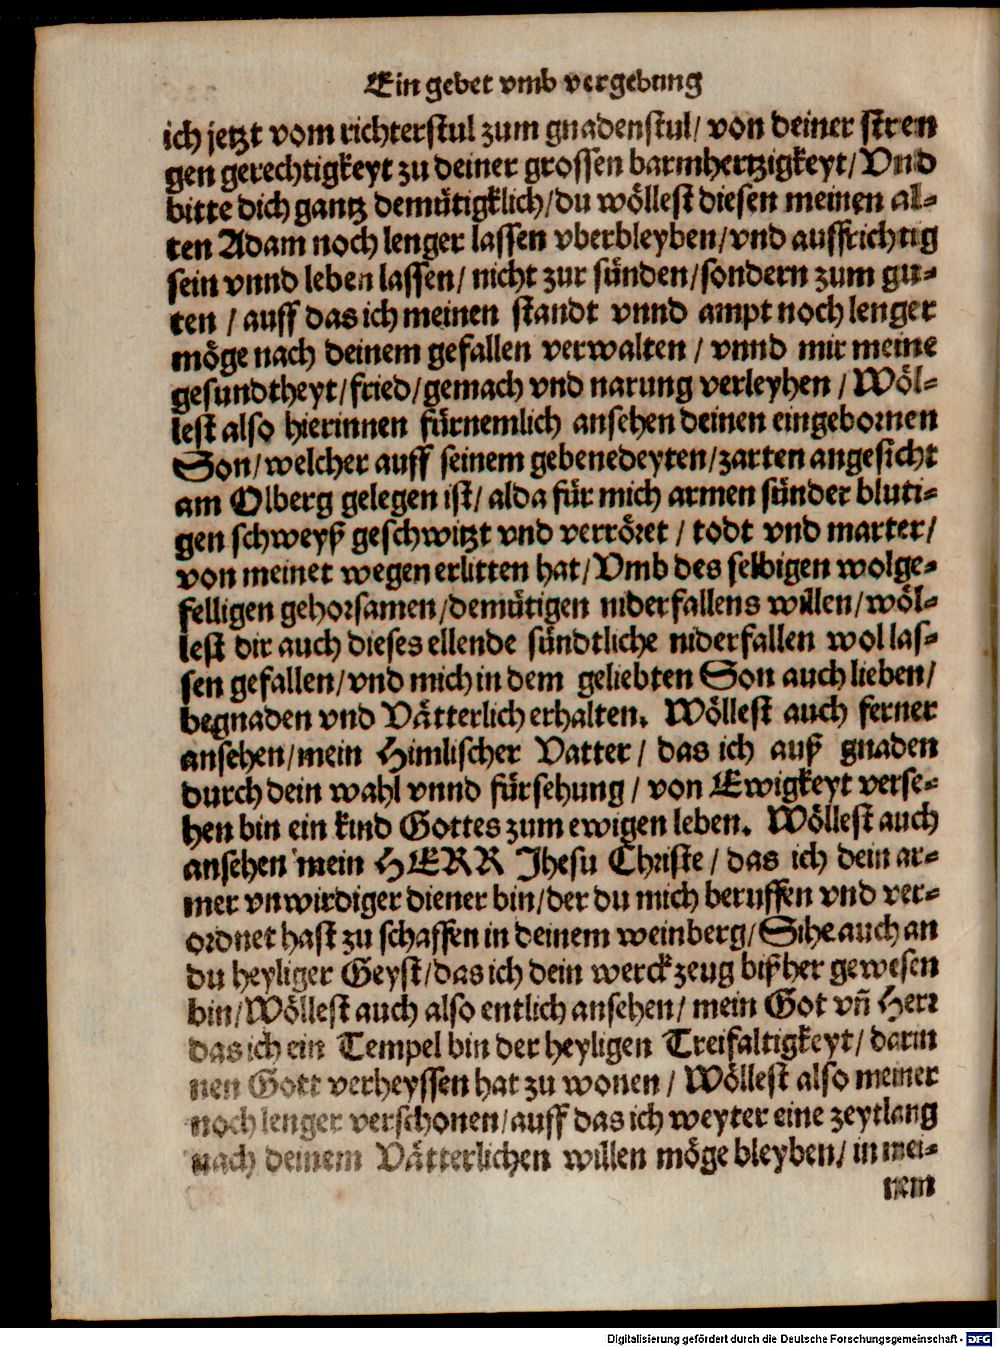 Ein gebet vmb vergebung
ich jetzt vom richterstul zum gnadenstul/ von deiner stren
gen gerechtigkeyt zu deiner grossen barmhertzigkeyt/ Vnd
bitte dich gantz demütigklich/ du wöllest diesen meinen al-
ten Adam noch lenger lassen vberbleyben/ vnd auffrichtig
sein vnnd leben lassen/ nicht zur sünden/ sondern zum gu-
ten / auff das ich meinen standt vnnd ampt noch lenger
möge nach deinem gefallen verwalten / vnnd mir meine
gesundtheyt/ fried/ gemach vnd narung verleyhen / Wöl-
lest also hierinnen fürnemlich ansehen deinen eingebornen
Son/ welcher auff seinem gebenedeyten/ zarten angesicht
am Olberg gelegen ist/ alda für mich armen sünder bluti-
gen schweyß geschwitzt vnd verröret / todt vnd marter/
von meinet wegen erlitten hat/ Vmb des selbigen wolge-
felligen gehorsamen/ demütigen niderfallens willen/ wöl-
lest dir auch dieses ellende sündtliche niderfallen wol las-
sen gefallen/ vnd mich in dem geliebten Son auch lieben/
begnaden vnd Vätterlich erhalten. Wöllest auch ferner
ansehen/ mein Himlischer Vatter / das ich auß gnaden
durch dein wahl vnnd fürsehung / von Ewigkeyt verse-
hen bin ein kind Gottes zum ewigen leben. Wöllest auch
ansehen mein HERR Jhesu Christe / das ich dein ar-
mer vnwirdiger diener bin/ der du mich beruffen vnd ver-
ordnet hast zu schaffen in deinem weinberg/ Sihe auch an
du heyliger Geyst/ das ich dein werckzeug bißher gewesen
bin/ Wöllest auch also entlich ansehen/ mein Got vñ Herr
das ich ein Tempel bin der heyligen Treifaltigkeyt/ darin
nen Gott verheyssen hat zu wonen / Wöllest also meiner
noch lenger verschonen/ auff das ich weyter eine zeytlang
nach deinem Vätterlichen willen möge bleyben/ in mei-
nem
Digitalisierung gefördert durch die Deutsche Forschungsgemeinschaft - DFG